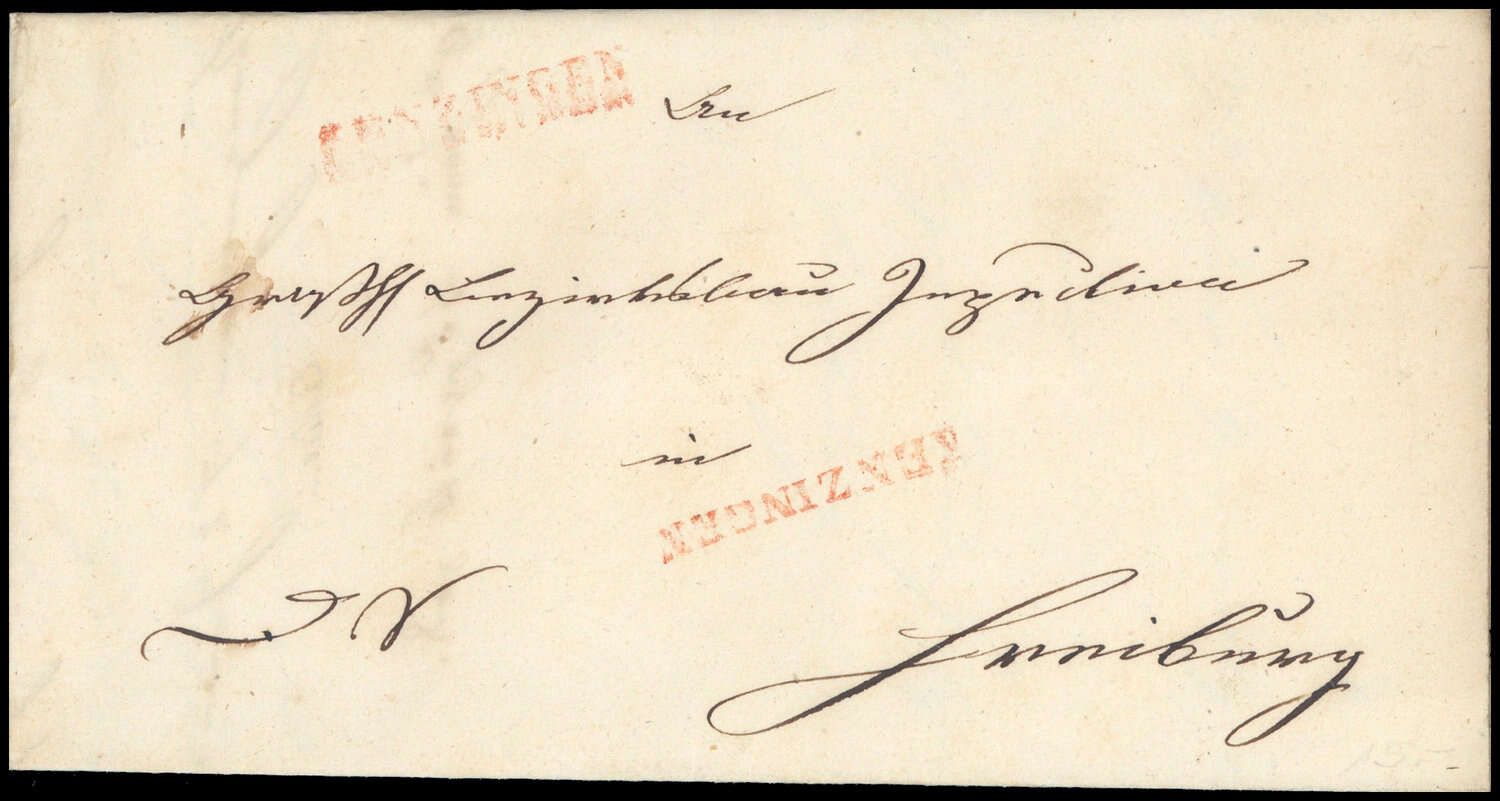 KENZINGEN
An
Großh Bezirksbau Inspection
in
KENZINGEN
D S
Freiburg